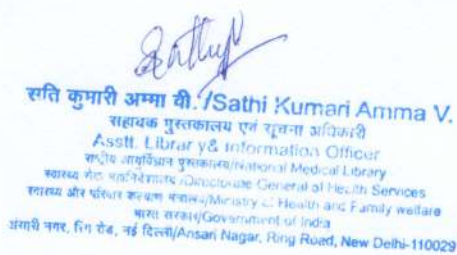 Sathy
सति कुमारी अम्मा वी./Sathi Kumari Amma V.
सहायक पुस्तकालय एवं सूचना अधिकारी
Asstt. Library & Information Officer
राष्ट्रीय आयुर्विज्ञान पुस्तकालय/National Medical Library
स्वास्थ्य सेवा महानिदेशालय/Directorate General of Health Services
स्वास्थ्य और परिवार कल्याण मंत्रालय/Ministry of Health and Family welfare
भारत सरकार/Government of India
अंसारी नगर, रिंग रोड, नई दिल्ली/Ansari Nagar, Ring Road, New Delhi-110029